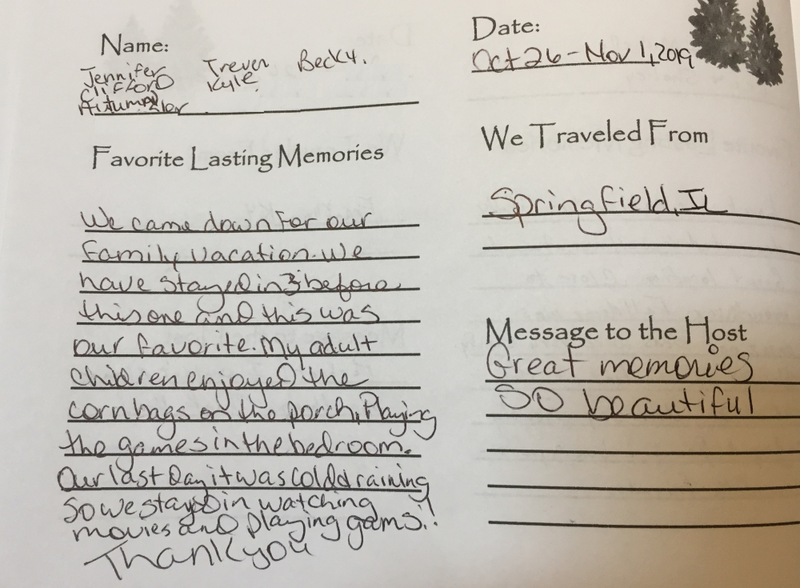 Name:
Jennifer Treven Becky.
Clifford Kyle
Autumn
Favorite Lasting Memories
We came down for our
family vacation. We
have stayed in 3 before
this one and this was
our favorite. My adult
children enjoyed the
cornbags on the porch, Playing
the games in the bedroom.
Our last Day it was cold & raining
So we stayed in watching
movies and playing gams!!
Thank you
Date:
Oct 26 - Nov 1, 2019
We Traveled From
Springfield, IL
Message to the Host
Great memories
SO beautiful